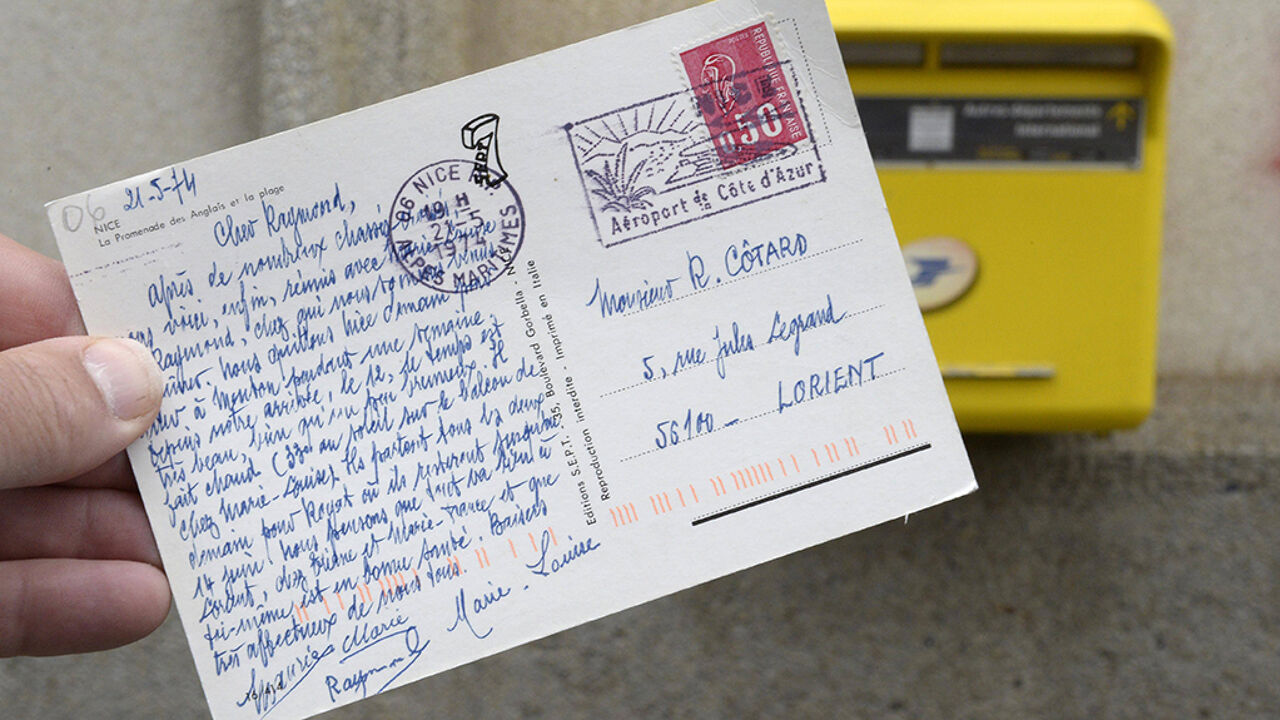 06
21-5-74
NICE
La Promenade des Anglais et la plage
Cher Raymond,
Après de nombreux chassés
voici, enfin, réunis avec Marie-Louise
Raymond, chez qui nous sommes venus
dîner. Nous quittons Nice demain
à Menton pendant une semaine.
Depuis notre arrivée, le 12, le temps est
très beau, bien qu'un peu brumeux. Il
fait chaud (33° au soleil sur le balcon de
chez Marie-Louise). Ils partent tous les deux
demain pour Royat où ils resteront jusqu'au
14 juin. Nous pensons que tout va bien à
Lorient, chez et Marie-France, et que
toi-même est en bonne santé. Baisers
très affectueux de nous tous.
Marie
Marie-Louise
Raymond
NICE R.P.
19 H
21-5
1974
06 ALPES MARITIMES
SEPT
Editions S.E.P.T. - 35, Boulevard Gorbella - N
Reproduction interdite - Imprimé en Italie
POSTES
REPUBLIQUE FRANÇAISE
0,50
Aéroport de la Côte d'Azur
Monsieur R. CÔTARD
5, rue Jules Legrand
56100 - LORIENT
Autres départements
International